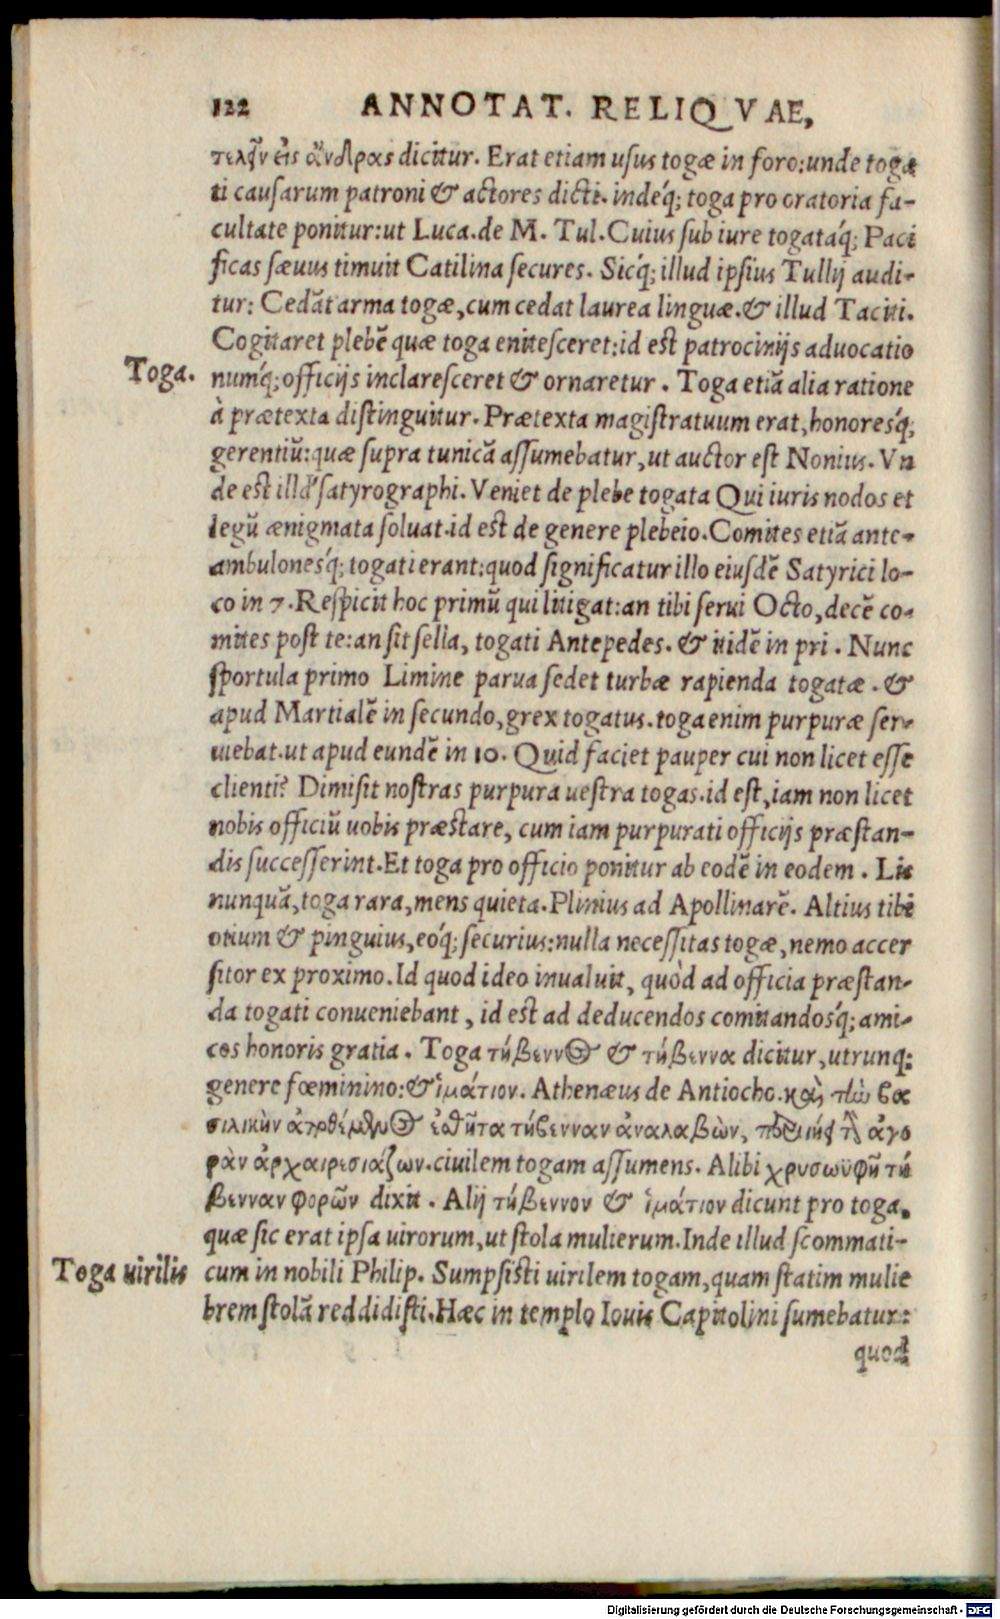 122 ANNOTAT. RELIQVAE,
τελεῖν εἰς ἄνδρας dicitur. Erat etiam usus togæ in foro: unde toga
ti causarum patroni & actores dicti. indéq; toga pro oratoria fa-
cultate ponitur: ut Luca. de M. Tul. Cuius sub iure togatáq; Paci
ficas sæuus timuit Catilina secures. Sicq́; illud ipsius Tullij audi-
tur: Cedāt arma togæ, cum cedat laurea linguæ. & illud Taciti.
Cogitaret plebē quæ toga enitesceret: id est patrocinijs aduocatio
Toga. numq́; officijs inclaresceret & ornaretur. Toga etiā alia ratione
à prætexta distinguitur. Prætexta magistratuum erat, honoresq́;
gerentiū: quæ supra tunicā assumebatur, ut auctor est Nonius. Vn
de est illd' satyrographi. Veniet de plebe togata Qui iuris nodos et
legū ænigmata soluat. id est de genere plebeio. Comites etiā ante-
ambulonesq́; togati erant: quod significatur illo eiusdē Satyrici lo-
co in 7. Respicit hoc primū qui litigat: an tibi serui Octo, decē co-
mites post te: an sit sella, togati Antepedes. & itidē in pri. Nunc
sportula primo Limine parua sedet turbæ rapienda togatæ. &
apud Martialē in secundo, grex togatus. toga enim purpuræ ser-
uiebat. ut apud eundē in 10. Quid faciet pauper cui non licet esse
clienti? Dimisit nostras purpura uestra togas. id est, iam non licet
nobis officiū uobis præstare, cum iam purpurati officijs præstan-
dis successerint. Et toga pro officio ponitur ab eodē in eodem. Lis
nunquā, toga rara, mens quieta. Plinius ad Apollinarē. Altius tibi
otium & pinguius, eoq́; securius: nulla necessitas togæ, nemo accer
sitor ex proximo. Id quod ideo inualuit, quòd ad officia præstan-
da togati conueniebant, id est ad deducendos comitandosq́; ami-
cos honoris gratia. Toga τήβεννος & τήβεννα dicitur, utrunq;
genere fœminino: & ἱμάτιον. Athenæus de Antiocho. καὶ τὼ βα
σιλικὴν ἀποθέμενος ἐσθῆτα τήβενναν ἀναλαβὼν, περιῄει τὼ ἀγο
ρὰν ἀρχαιρεσιάζων. ciuilem togam assumens. Alibi χρυσωϋφῆ τή
βενναν φορῶν dixit. Alij τήβεννον & ἱμάτιον dicunt pro toga,
quæ sic erat ipsa uirorum, ut stola mulierum. Inde illud scommati-
Toga uirilis cum in nobili Philip. Sumpsisti uirilem togam, quam statim mulie
brem stolā reddidisti. Hæc in templo Iouis Capitolini sumebatur:
quod
Digitalisierung gefördert durch die Deutsche Forschungsgemeinschaft - DFG